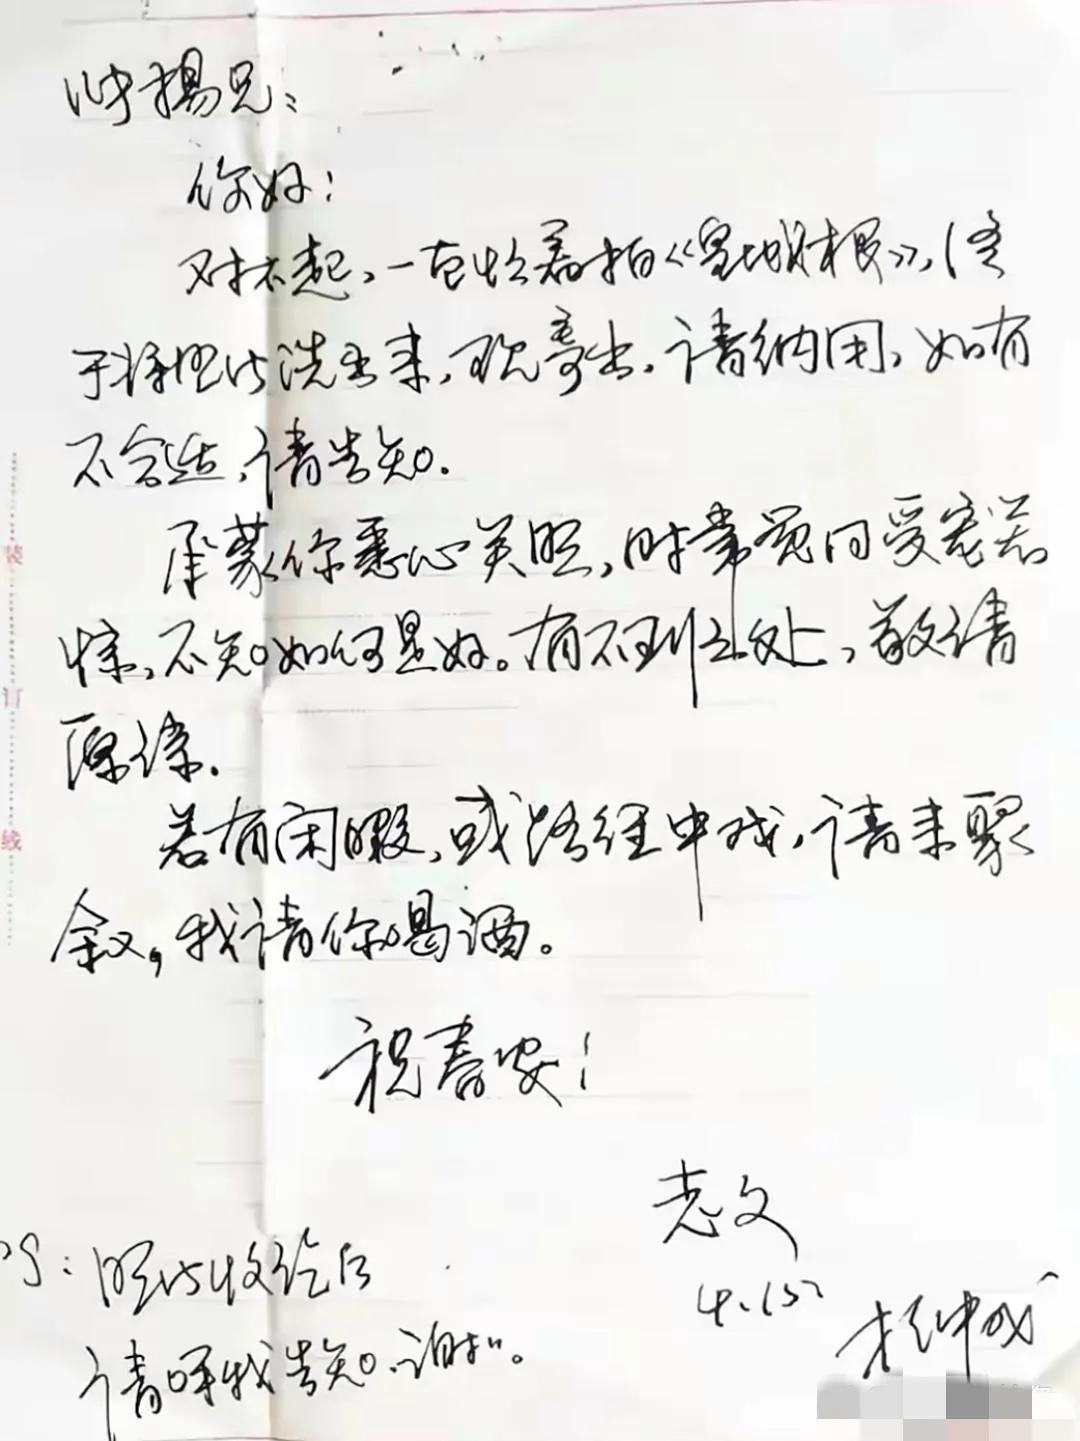 叶扬兄：
你好！
对不起，一直忙着拍《皇城根》，终
于将照片洗出来，现寄出，请纳用，如有
不合适，请告知．
承蒙你悉心关照，时常觉得受宠若
惊，不知如何是好。有不到之处，敬请
原谅．
若有闲暇，或路经中戏，请来聚
叙，我请你喝酒。
祝春安！
志文
4.15
PS：照片收结后
请呼我告知．谢谢。
装
订
线